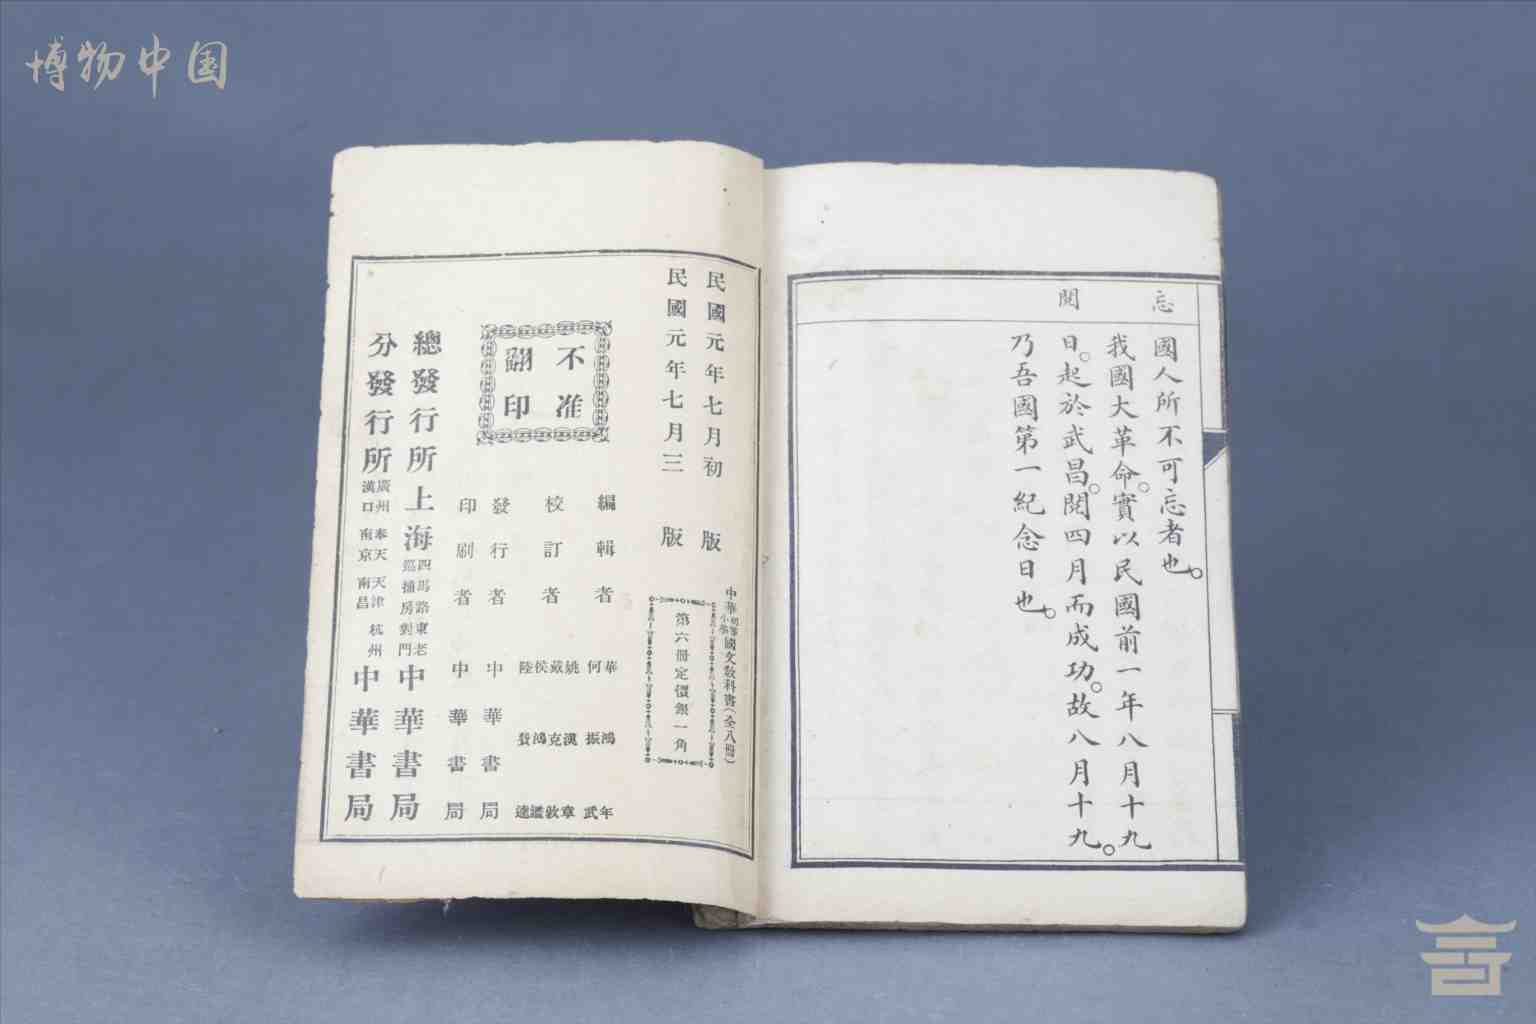 博物中国
忘
閱
國人所不可忘者也。
我國大革命。實以民國前一年八月十九
日。起於武昌。閱四月而成功。故八月十九。
乃吾國第一紀念日也。
民國元年七月初版
民國元年七月三版
中華初等小學國文教科書(全八冊)
第六冊定價銀一角
不准翻印
編輯者 華鴻年 何振武
校訂者 姚漢章 戴克敦 侯鴻鑑 陸費逵
發行者 中華書局
印刷者 中華書局
總發行所 上海四馬路東老巡捕房對門 中華書局
分發行所 廣州 漢口 奉天 南京 天津 南昌 杭州 中華書局